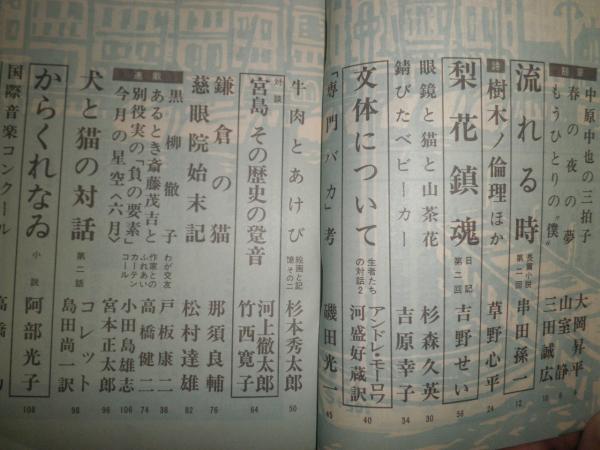 随筆
中原中也の三拍子 大岡昇平
春の夜の夢 山室静
もうひとりの〝僕〟 三田誠広 10
流れる時 長篇小説 第二回 串田孫一 12
詩 樹木ノ倫理ほか 草野心平 24
梨花鎮魂 日記 第二回 吉野せい 56
眼鏡と猫と山茶花 杉森久英 30
錆びたベビーカー 吉原幸子 34
文体について 生者たちの対話2 アンドレ・モーロワ 河盛好蔵訳 40
「専門バカ」考 磯田光一 45
牛肉とあけび 絵画と記憶 その二 杉本秀太郎 50
対談 宮島 その歴史の跫音 河上徹太郎 竹西寛子 64
鎌倉の猫 那須良輔 76
慈眼院始末記 松村達雄 82
連載
黒柳徹子 わが交友 戸板康二 38
あるとき斎藤茂吉と 作家とのふれあい 高橋健二 74
別役実の「負の要素」 カーテンコール 小田島雄志 106
今月の星空〈六月〉 宮本正太郎 96
犬と猫の対話 第二話 コレット 島田尚一訳 98
からくれなゐ 小説 阿部光子 108
国際音楽コンクール 高橋